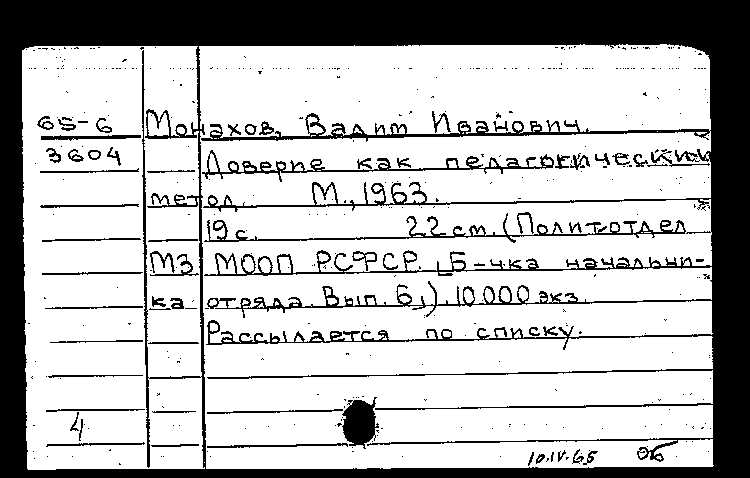 65-6 Монахов, Вадим Иванович.
3604 Доверие как педагогический
метод. М., 1963.
19 с. 22 см. (Политотдел
МЗ МООП РСФСР. Б-чка начальни-
ка отряда. Вып. 6). 10.000 экз.
Рассылается по списку.
4
10.IV.65 Об